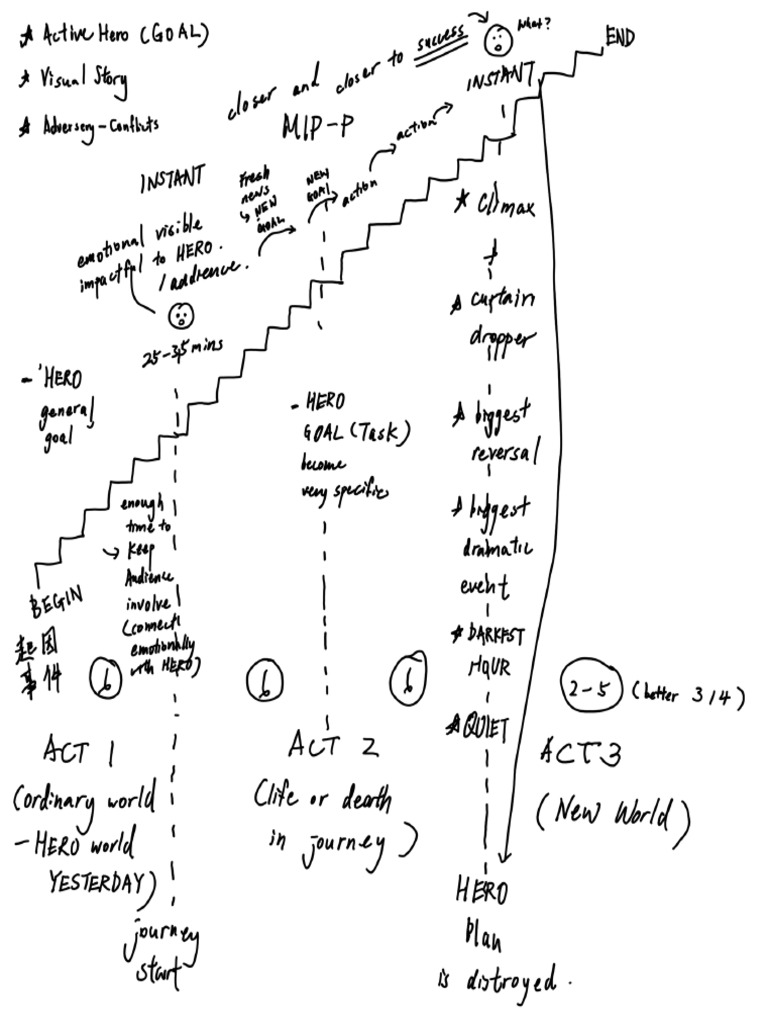 ★ Active Hero (GOAL)
★ Visual Story
★ Adversery-Conflicts
closer and closer to success
What?
END
INSTANT
MIP-P
action
action
NEW
GOAL
Fresh
news
↳ NEW
GOAL
INSTANT
emotional visible
impactful to HERO.
/ audience.
25-35 mins
- 'HERO
general
goal
- HERO
GOAL (Task)
become
very specific
★ Climax
★ curtain
dropper
★ biggest
reversal
★ biggest
dramatic
event
★ DARKEST
HOUR
★ QUIET
enough
time to
→ Keep
Audience
involve
(connect
emotionally
with HERO)
BEGIN
起因
事件
6
6
6
2-5 (better 3/4)
ACT 1
(ordinary world
- HERO world
YESTERDAY)
journey
start
ACT 2
(life or death
in journey)
ACT 3
(New World)
HERO
plan
is distroyed.